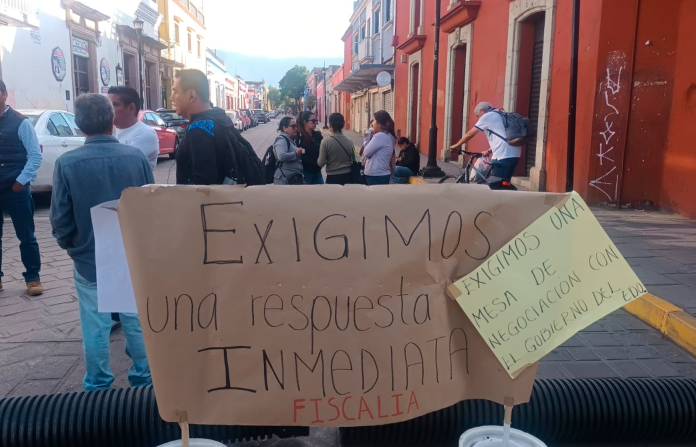 EXIGIMOS
una respuesta
INMEDIATA
FISCALIA
EXIGIMOS UNA
MESA DE
NEGOCIACION CON
EL GOBIERNO DEL EDO